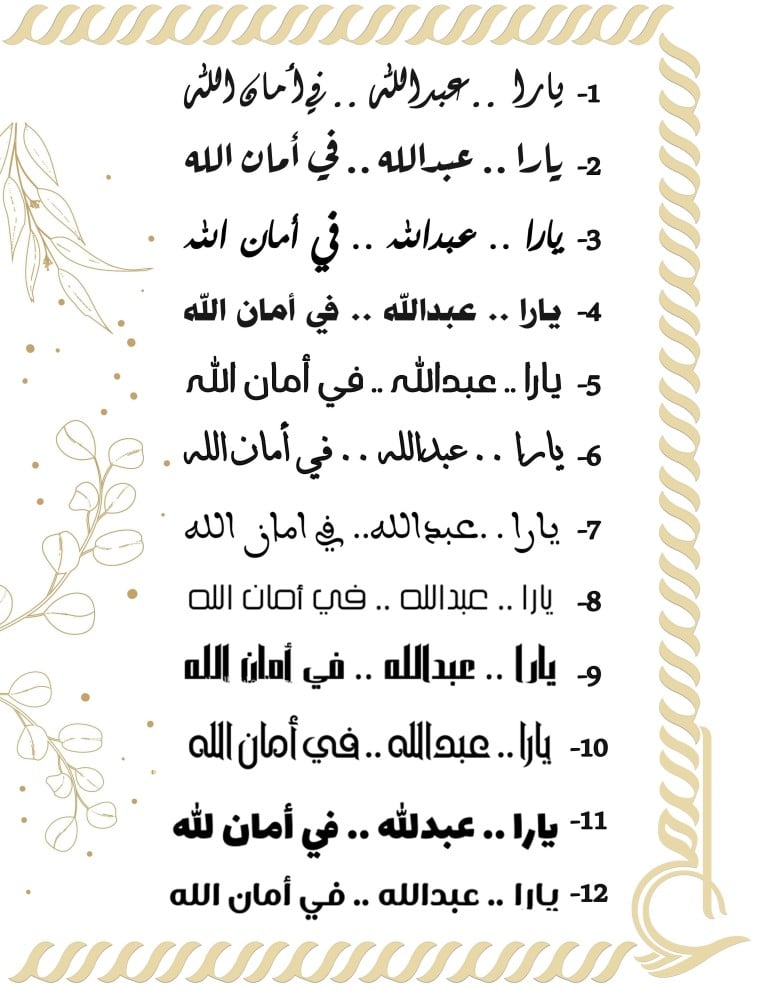 1- يارا .. عبدالله .. في أمان الله
2- يارا .. عبدالله .. في أمان الله
3- يارا .. عبدالله .. في أمان الله
4- يارا .. عبدالله .. في أمان الله
5- يارا .. عبدالله .. في أمان الله
6- يارا .. عبدالله .. في أمان الله
7- يارا .. عبدالله.. في امان الله
8- يارا .. عبدالله .. في أمان الله
9- يارا .. عبدالله .. في أمان الله
10- يارا .. عبدالله .. في أمان الله
11- يارا .. عبدلله .. في أمان لله
12- يارا .. عبدالله .. في أمان الله